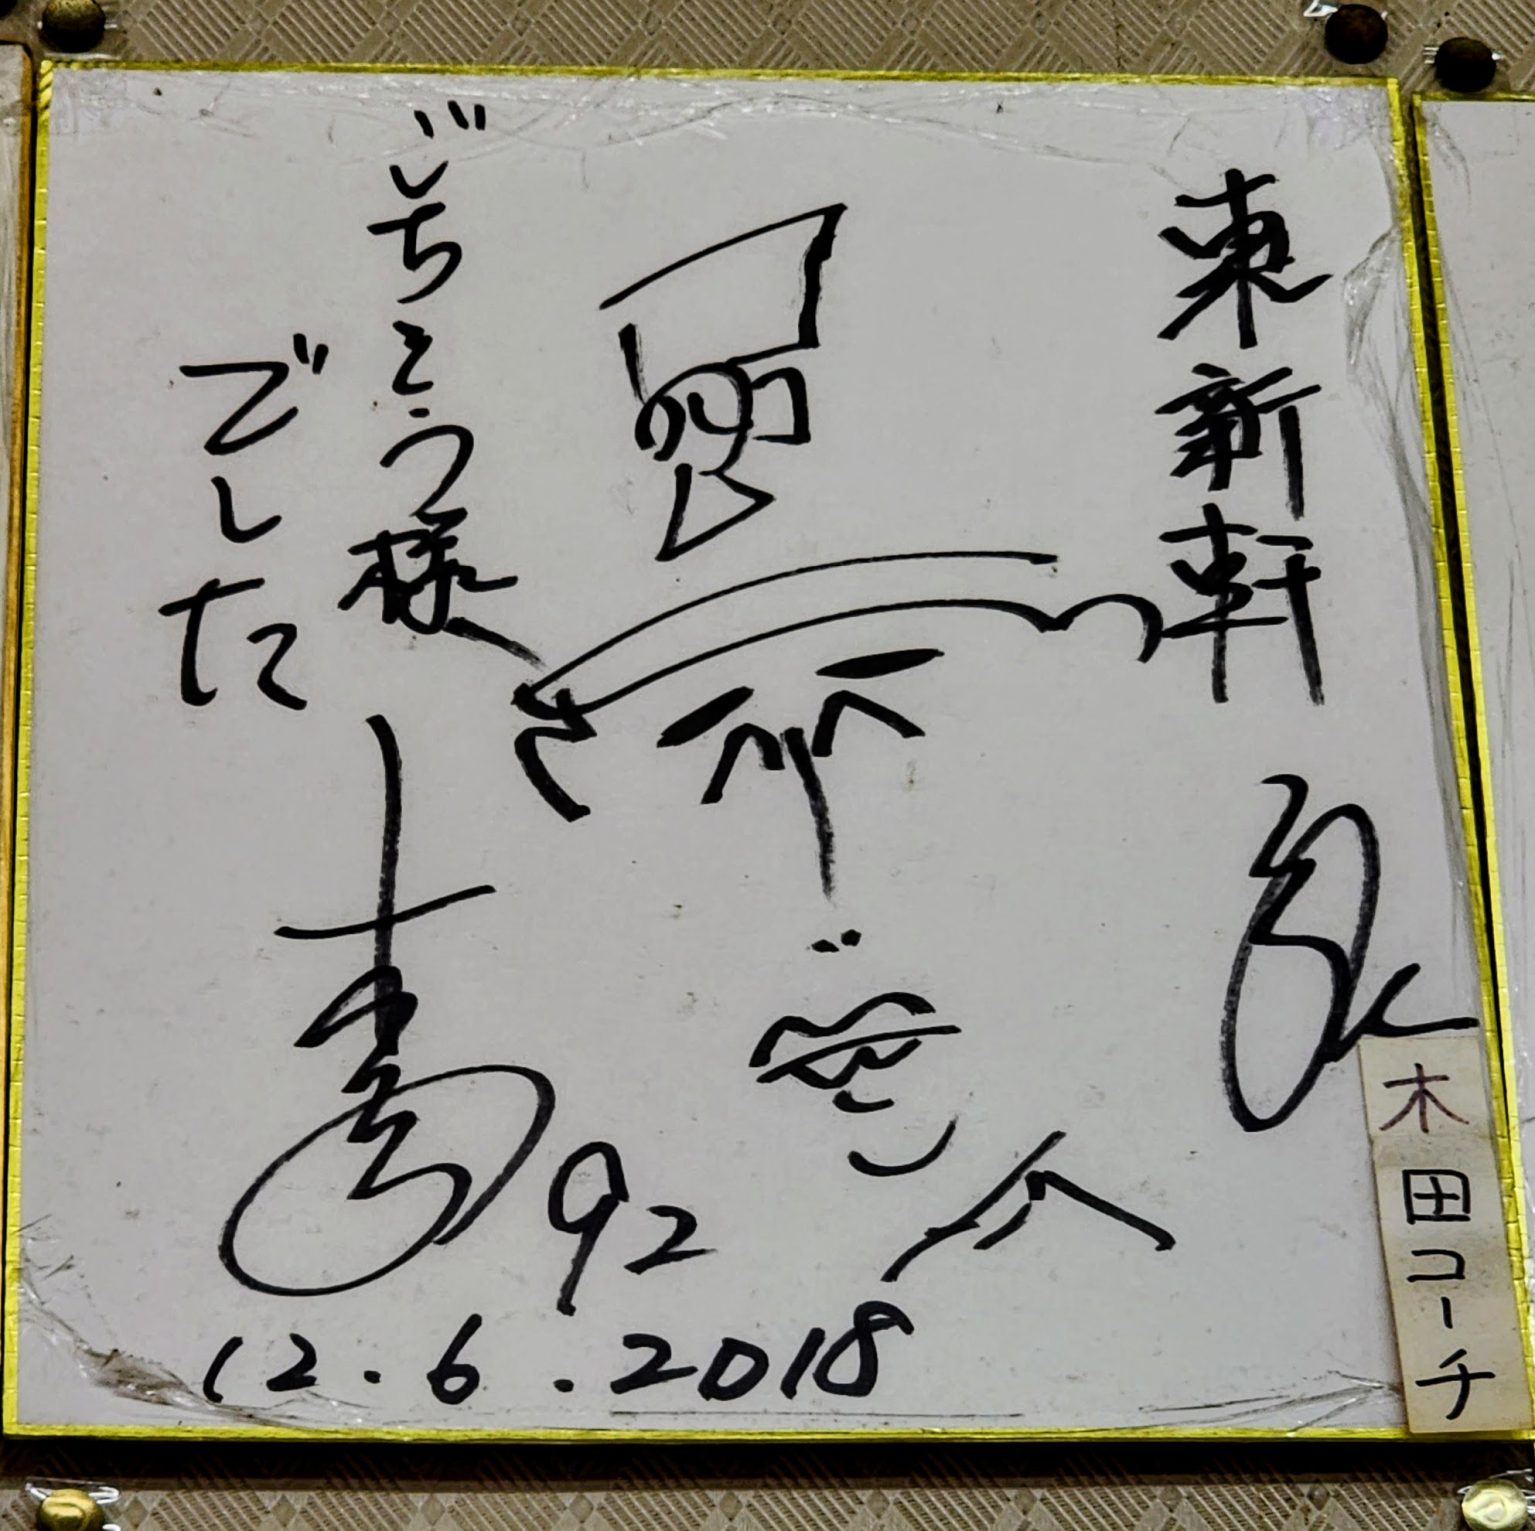 東新軒
ごちそう様
でした
92
12.6.2018
木田コーチ